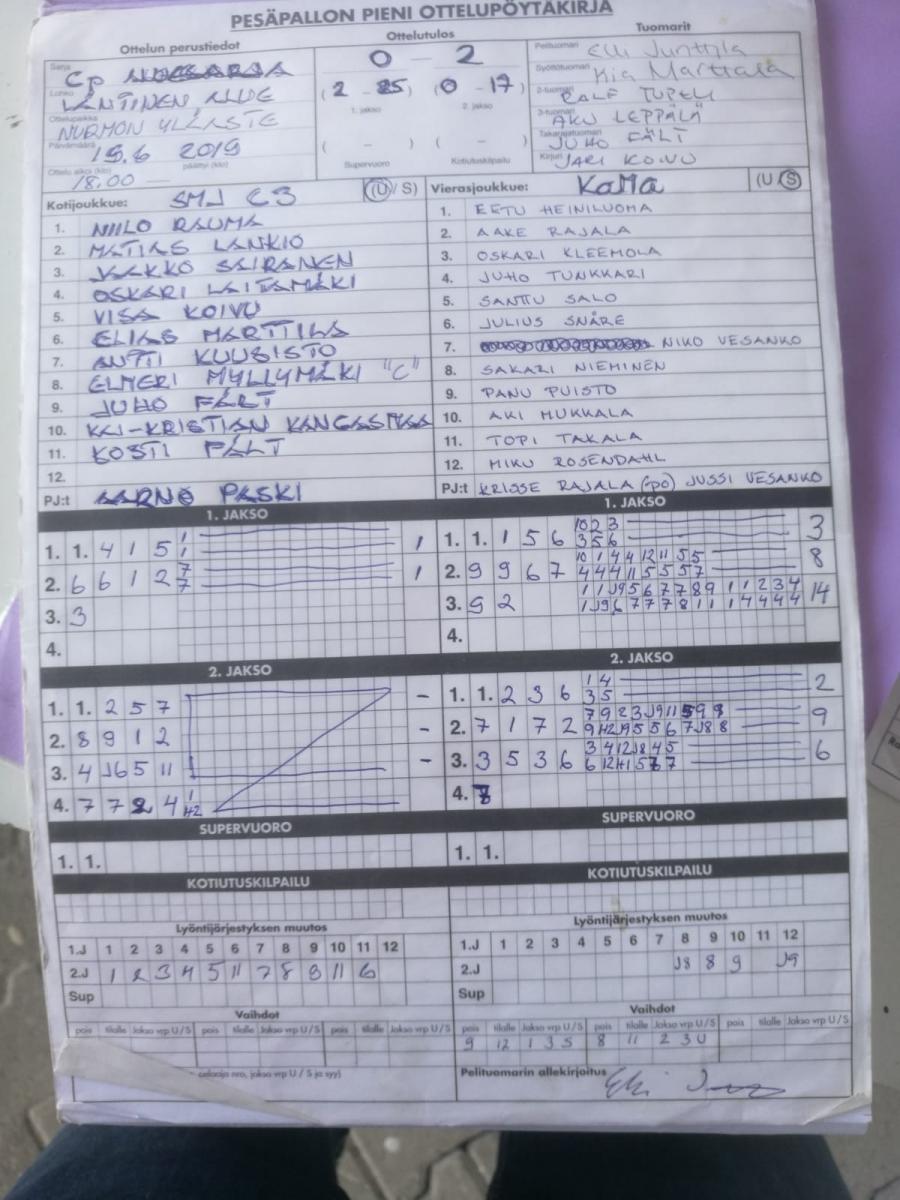 PESÄPALLON PIENI OTTELUPÖYTÄKIRJA
Ottelun perustiedot
Ottelutulos
Tuomarit
Sarja
Cp
Lohko
LÄNTINEN ALUE
Ottelupaikka
NURMON YLÄASTE
Päivämäärä
19.6 2019
Ottelu alkoi (klo) päättyi (klo)
18.00 —
0 — 2
( 2 - 25 ) ( 0 - 17 )
1. jakso 2. jakso
( - ) ( - )
Supervuoro Kotiutuskilpailu
Pelituomari Elli Junttila
Syöttötuomari Mia Marttala
2-tuomari RALF TUPELI
3-tuomari AKU LEPPÄLÄ
Takarajatuomari JUHO FÄLT
Kirjuri JARI KOIVU
Kotijoukkue: SMJ C3 (U / S)
1. NIILO RAUMA
2. MATIAS LANKIO
3. JAAKKO SAIRANEN
4. OSKARI LAITAMÄKI
5. VISA KOIVU
6. ELIAS MARTTILA
7. ANTTI KUUSISTO
8. ELMERI MYLLYMÄKI "C"
9. JUHO FÄLT
10. KAI-KRISTIAN
11. KOSTI FÄLT
12.
PJ:t AARNO PASKI
Vierasjoukkue: KaMa (U / S)
1. EETU HEINILUOMA
2. AAKE RAJALA
3. OSKARI KLEEMOLA
4. JUHO TUNKKARI
5. SANTTU SALO
6. JULIUS SNÅRE
7. NIKO VESANKO
8. SAKARI NIEMINEN
9. PANU PUISTO
10. AKI MUKKALA
11. TOPI TAKALA
12. MIKU ROSENDAHL
PJ:t KRISSE RAJALA (po) JUSSI VESANKO
1. JAKSO
1. 1. 4 1 5 1 1 1
2. 6 6 1 2 7 7 1
3. 3
4.
1. JAKSO
1. 1. 1 5 6 10 2 3 3
3 5 6
2. 9 9 6 7 10 1 4 4 12 11 5 5 8
4 4 4 11 5 5 5 7
3. 9 2 1 1 J9 5 6 7 7 8 9 1 1 2 3 4 14
1 J9 6 7 7 7 8 1 1 1 4 4 4 4
4.
2. JAKSO
1. 1. 2 5 7 -
2. 8 9 1 2 -
3. 4 J6 5 11 -
4. 7 7 2 4 1
2. JAKSO
1. 1. 2 3 6 1 4 2
3 5
2. 7 1 7 2 7 9 2 3 J9 11 5 9 8 9
3. 3 5 3 6 3 4 12 J8 4 5 6
4.
SUPERVUORO
1. 1.
SUPERVUORO
1. 1.
KOTIUTUSKILPAILU
KOTIUTUSKILPAILU
Lyöntijärjestyksen muutos
1.J 1 2 3 4 5 6 7 8 9 10 11 12
2.J 1 2 3 4 5 11 7 8 9 11 6
Sup
Lyöntijärjestyksen muutos
1.J 1 2 3 4 5 6 7 8 9 10 11 12
2.J J8 8 9 J9
Sup
Vaihdot
pois tilalle Jakso vrp U / S pois tilalle Jakso vrp U / S pois tilalle Jakso vrp U / S
Vaihdot
pois tilalle Jakso vrp U / S pois tilalle Jakso vrp U / S pois tilalle Jakso vrp U / S
9 12 1 3 S 8 11 2 3 U
nro, jakso vrp U / S ja syy)
Pelituomarin allekirjoitus